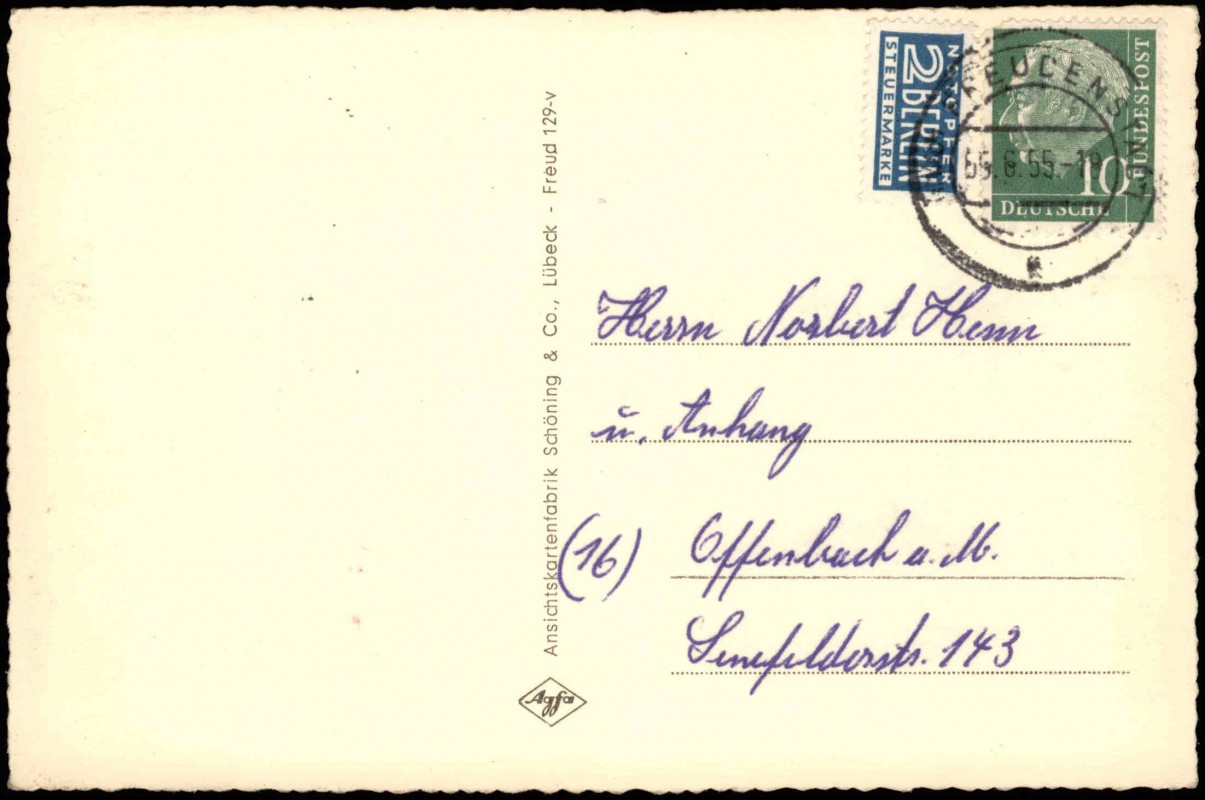 NOTOPFER
2 BERLIN
STEUERMARKE
BUNDESPOST
10
DEUTSCHE
FREUDENSTADT
6.55.-18
Ansichtskartenfabrik Schöning & Co., Lübeck - Freud 129-v
Herrn Norbert Henn
u. Anhang
(16) Offenbach a. M.
Senefelderstr. 143
Agfa